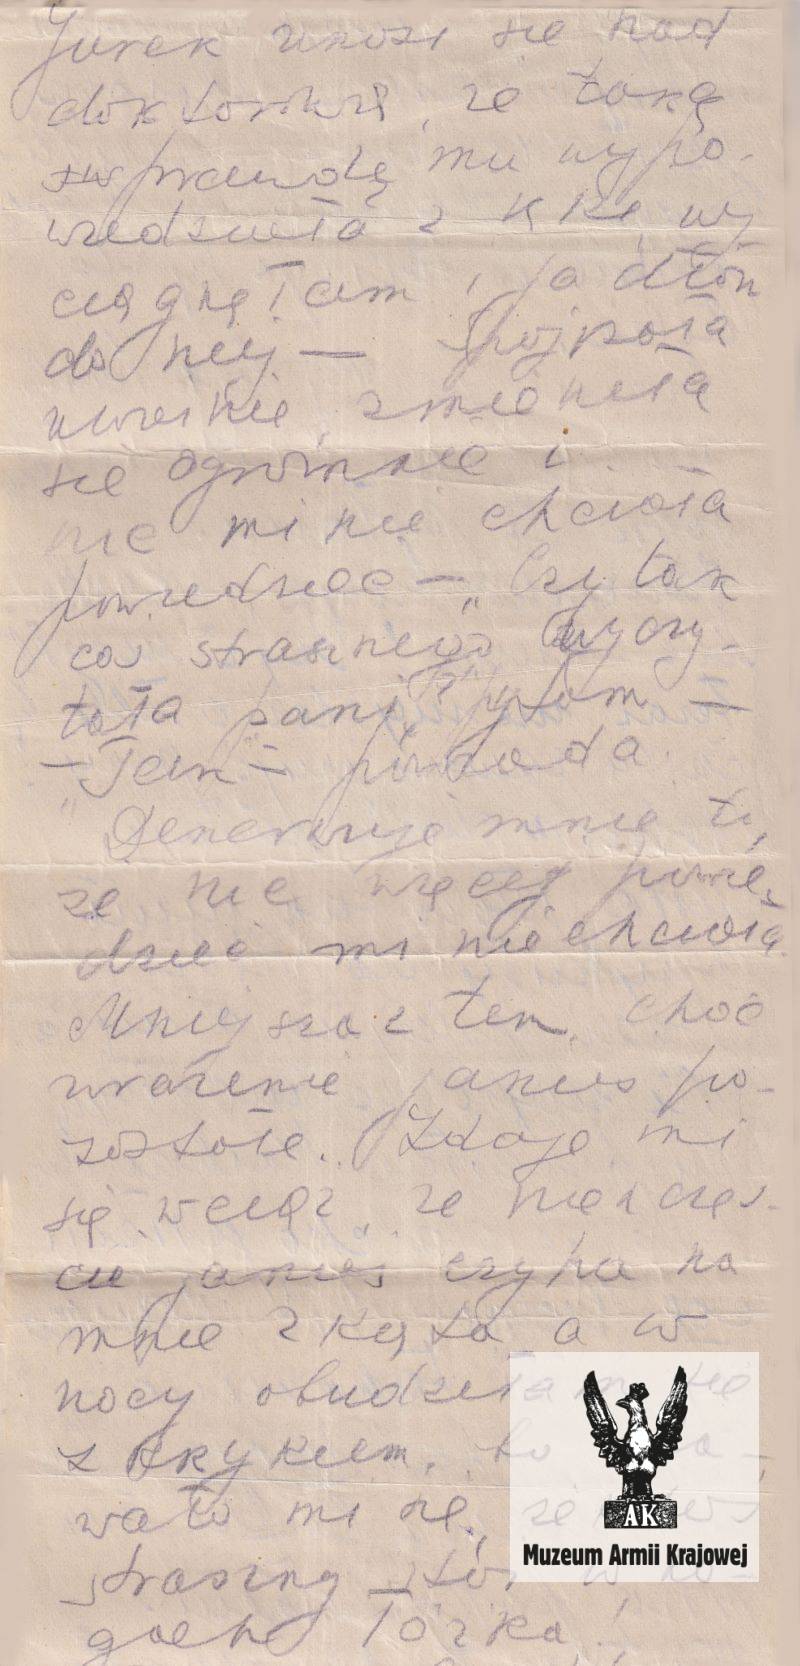 Jurek unosi się nad
doktorową, że taką
prawdę mu wypo-
wiedziała z ręki, wy
ciągnęłam i ja dłoń
do niej — Spojrzała
uważnie, zmieniła
się ogromnie i
nic mi nie chciała
powiedzieć — „Czy tak
coś strasznego wyczy-
tała pani?" pytam —
— „Tak" — powiada.
Denerwuje mnie to,
że nic więcej powie-
dzieć mi nie chciała
Mniejsza z tem, choć
wrażenie jakieś po-
zostało. Zdaje mi
się wciąż, że nieszczęś-
cie jakieś czyha na
mnie z kąta, a w
nocy obudziłam się
z krzykiem, bo
wało mi się, że
straszny stoi w
gach łóżka!
AK
Muzeum Armii Krajowej